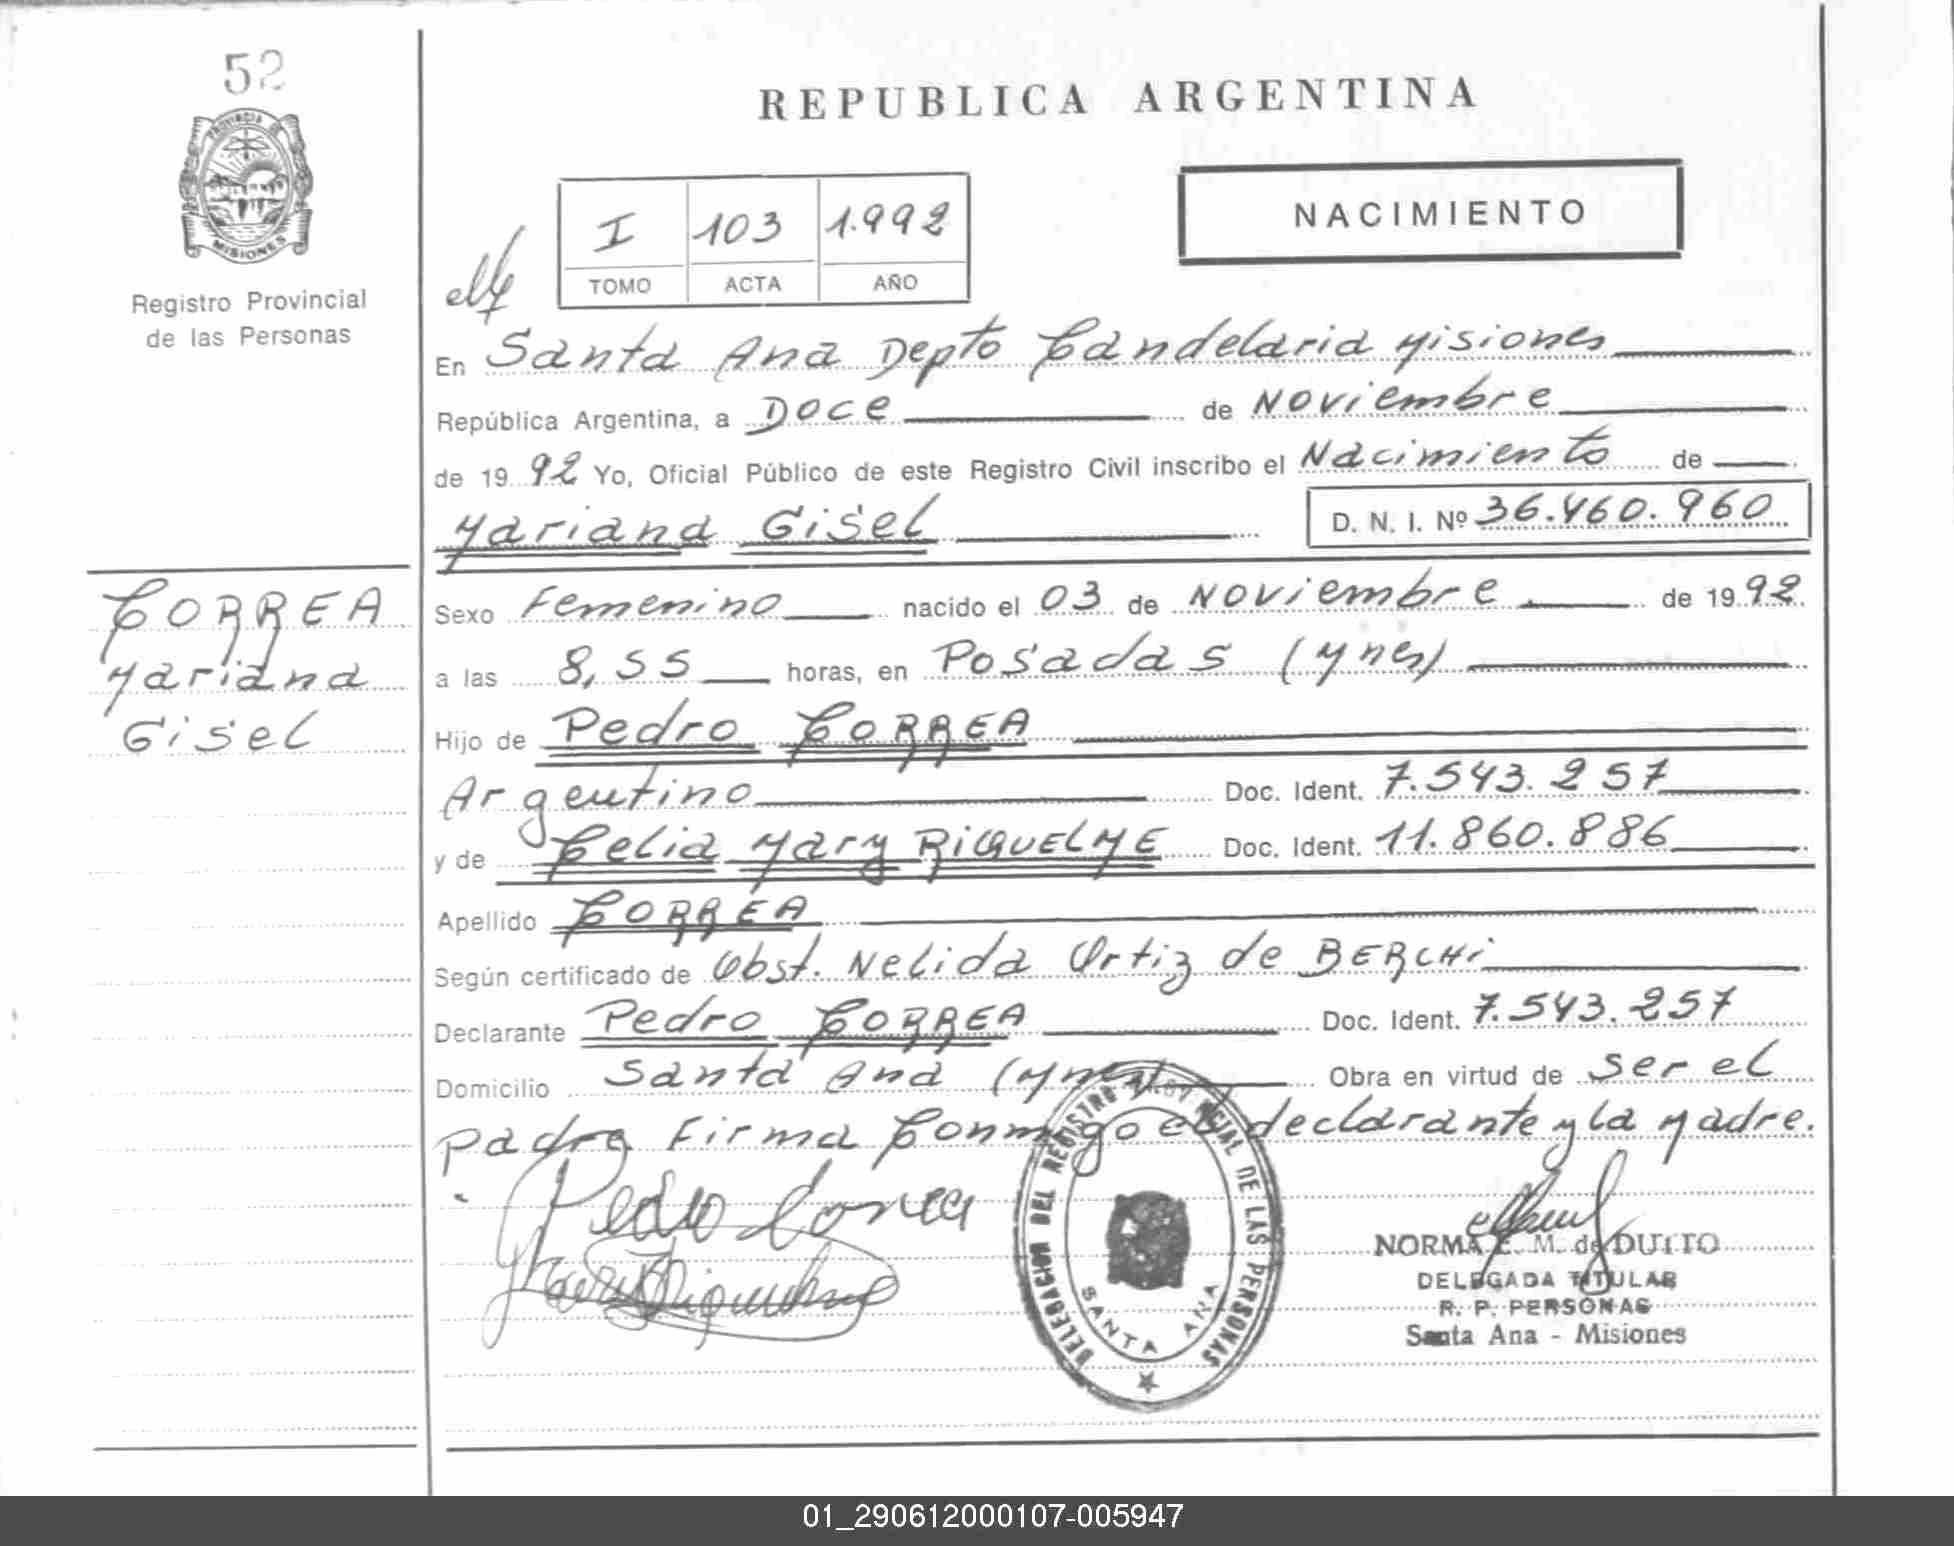 52
PROVINCIA DE
MISIONES
Registro Provincial
de las Personas
REPUBLICA ARGENTINA
NACIMIENTO
I 103 1.992
TOMO ACTA AÑO
En Santa Ana Depto Candelaria Misiones
República Argentina, a Doce de Noviembre
de 1992 Yo, Oficial Público de este Registro Civil inscribo el Nacimiento de
Mariana Gisel D. N. I. Nº 36.460.960
CORREA
Mariana
Gisel
Sexo Femenino nacido el 03 de Noviembre de 1992
a las 8,55 horas, en Posadas (Mnes)
Hijo de Pedro CORREA
Argentino Doc. Ident. 7.543.257
y de Celia Mary RIQUELME Doc. Ident. 11.860.886
Apellido CORREA
Según certificado de Obst. Nelida Ortiz de BERCHI
Declarante Pedro CORREA Doc. Ident. 7.543.257
Domicilio Santa Ana (Mnes) Obra en virtud de ser el
padre Firma Conmigo el declarante y la Madre.
Pedro Correa
DELEGACION DEL REGISTRO PROVINCIAL DE LAS PERSONAS
SANTA ANA
NORMA E. M. de
DELEGADA TITULAR
R. P. PERSONAS
Santa Ana - Misiones
01_290612000107-005947